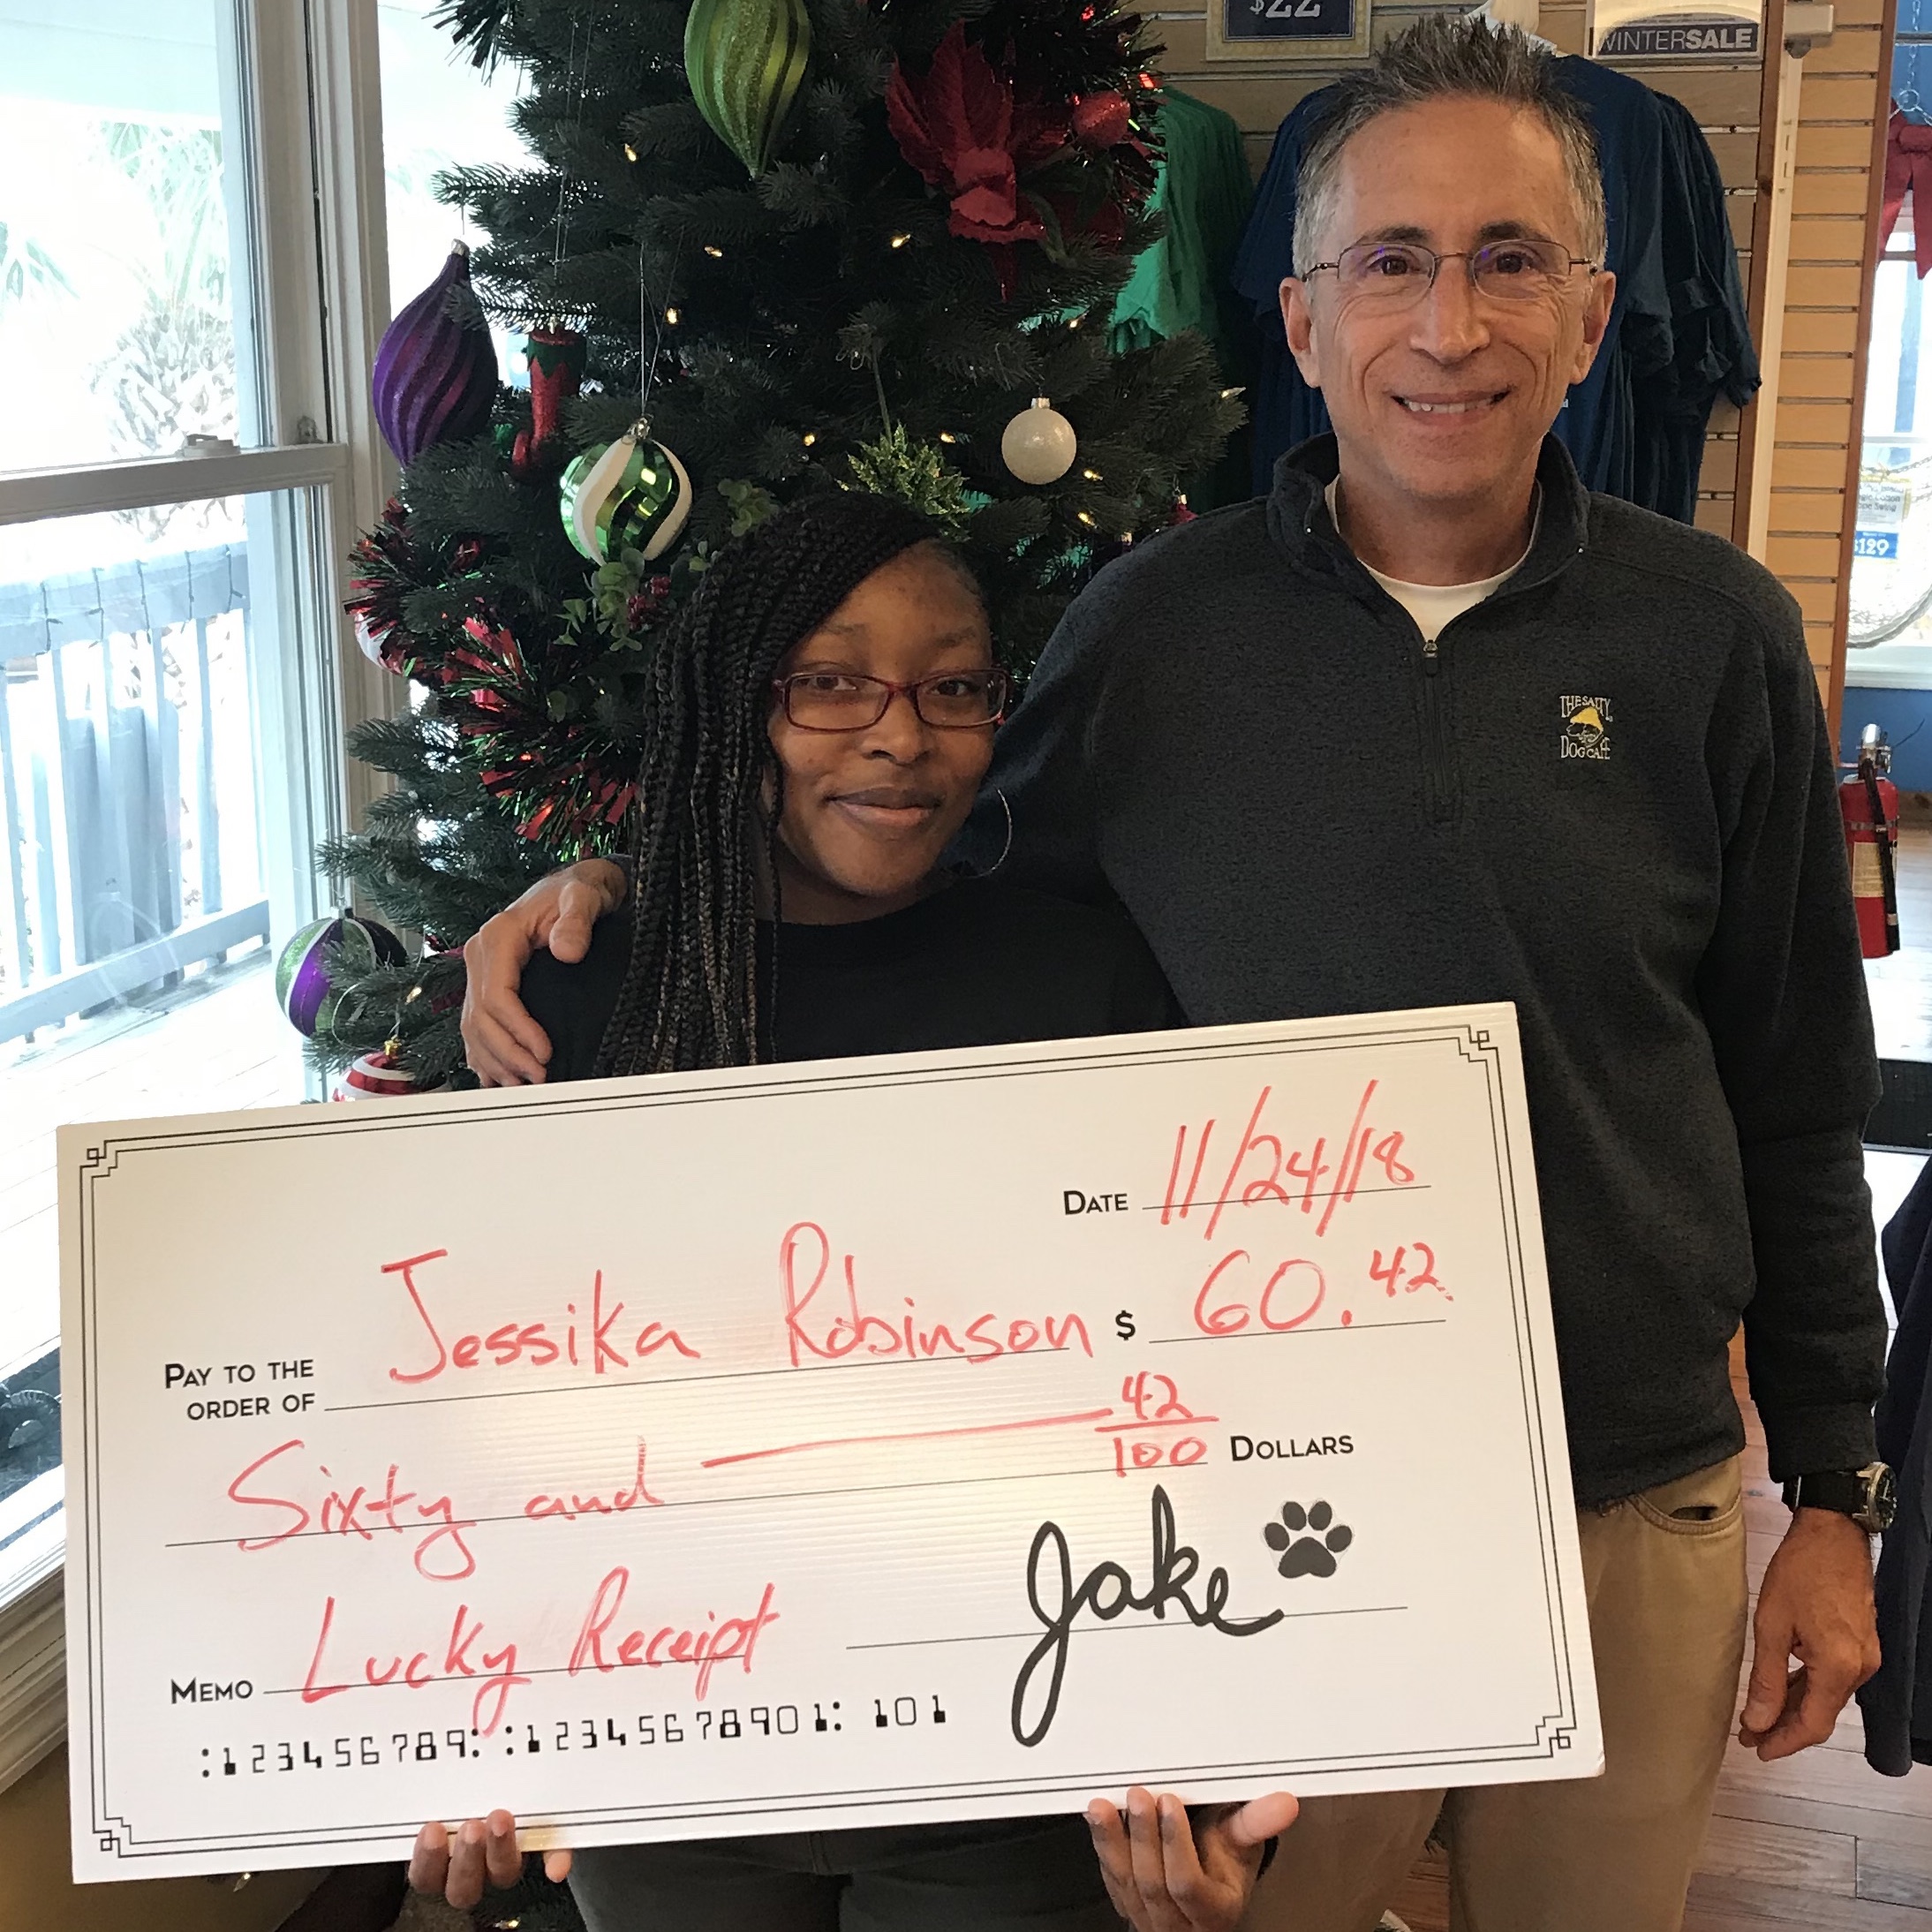 $22
WINTERSALE
THE SALTY
DOG CAFE
$129
DATE 11/24/18
PAY TO THE
ORDER OF Jessika Robinson $ 60.42
Sixty and 42/100 DOLLARS
Jake
MEMO Lucky Receipt
:123456789: :12345678901: 101